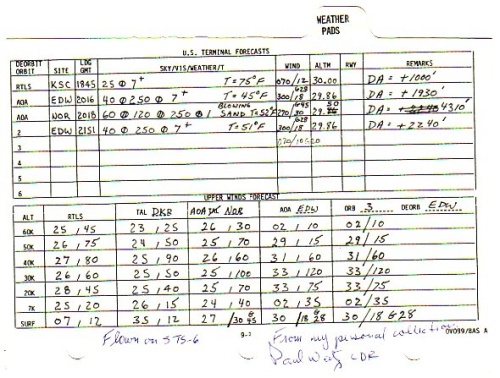 WEATHER
PADS
U.S. TERMINAL FORECASTS
DEORBIT ORBIT SITE LDG GMT SKY/VIS/WEATHER/T WIND ALTM RWY REMARKS
RTLS KSC 1845 25 Φ 7+ T=75°F 070/12 30.00 DA = +1000'
AOA EDW 2016 40 Φ 250 Φ 7+ T=45°F 300/18 G28 29.86 DA = +1930'
AOA NOR 2018 60 Φ 120 Φ 250 Φ 1 BLOWING SAND T=52°F 270/30 G45 DA = 4310'
2 EDW 2151 40 Φ 250 Φ 7+ T=51°F 300/18 G28 29.86 DA = +2240'
3
4
5
6
UPPER WINDS FORECAST
ALT RTLS TAL DKR AOA NOR AOA EDW ORB 3 DEORB EDW
60K 25 / 45 23 / 25 26 / 30 02 / 10 02 / 10
50K 26 / 75 24 / 50 25 / 70 29 / 15 29 / 15
40K 27 / 80 25 / 90 26 / 60 31 / 60 31 / 60
30K 26 / 60 25 / 50 25 / 100 33 / 120 33 / 120
20K 28 / 45 25 / 40 25 / 70 33 / 75 33 / 75
7K 25 / 20 26 / 15 24 / 40 02 / 35 02 / 35
SURF 07 / 12 35 / 12 27 / 30 G 45 30 / 18 G 28 30 / 18 G 28
Flown on STS-6
From my personal collection.
Paul Weitz CDR